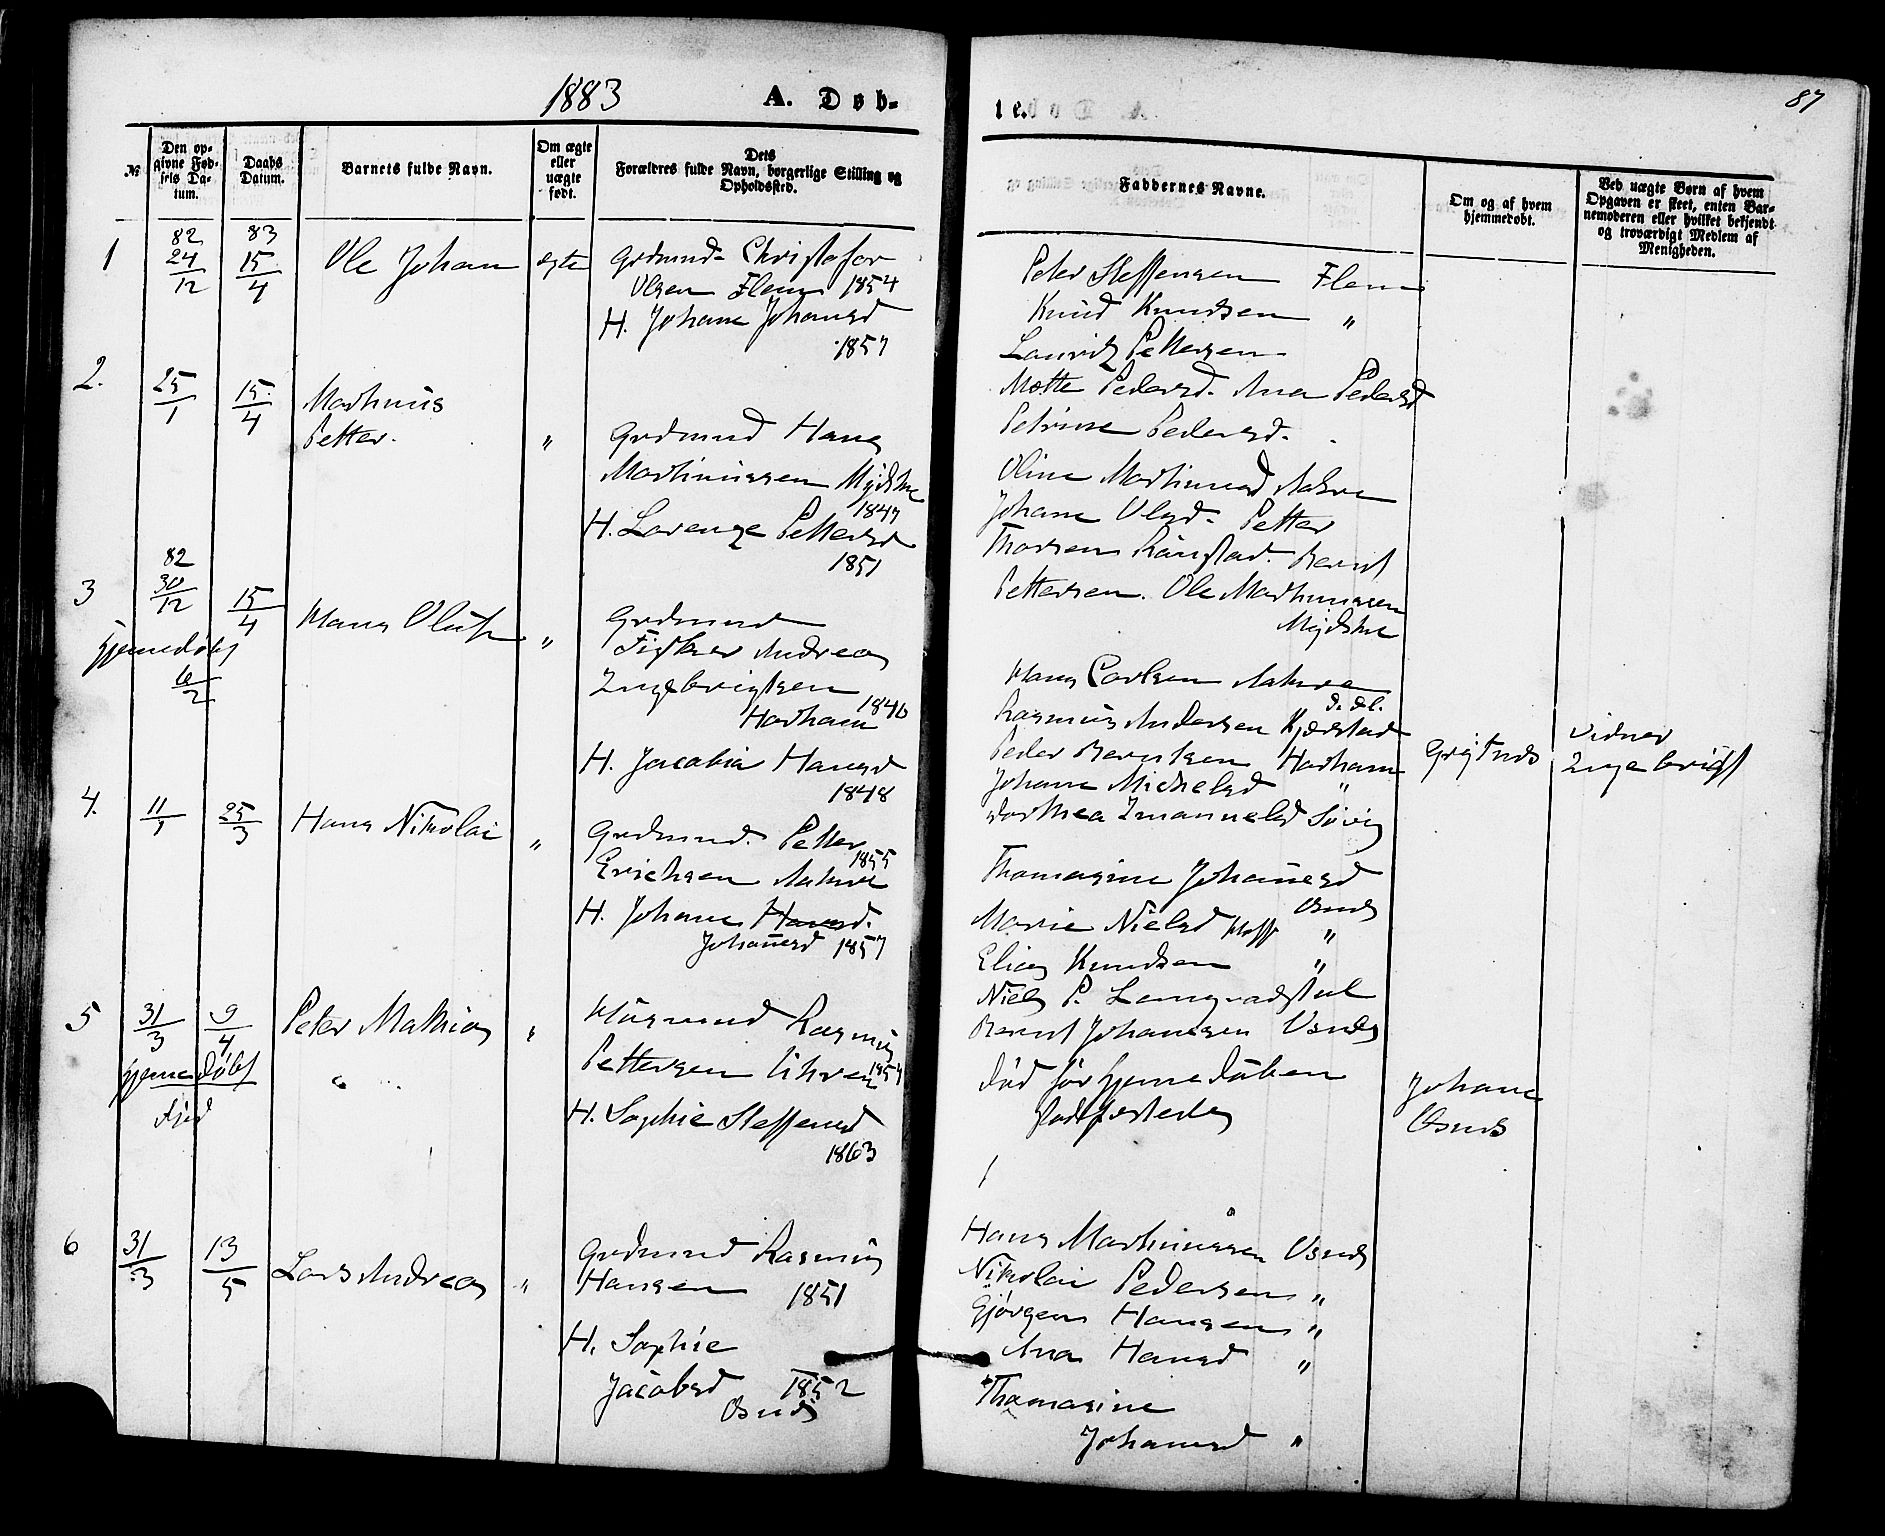 1883
A. Døb-
te.
87
№
Den op-
givne Fød-
sels Da-
tum.
Daabs
Datum.
Barnets fulde Navn.
Om ægte
eller
uægte
født.
Dets
Forældres fulde Navn, borgerlige Stilling og
Opholdssted.
Faddernes Navne.
Om og af hvem
hjemmedøbt.
Ved uægte Børn af hvem
Opgaven er skeet, enten Bar-
nemoderen eller hvilket bekjendt
og troværdigt Medlem af
Menigheden.
1
82
24/12
83
15/4
Ole Johan
egte
Grdmnd. Christofer
Olsen Flem 1854
H. Johane Johansd
1857
Peter Steffensen Flem
Knud Knudsen "
Lauritz Pettersen
Mette Pedersd. Ana Pedersd
Petrine Pedersd.
2.
25/1
15/4
Mathinus
Petter.
"
Grdmnd Hans
Martinussen
1847
H. Lorenze Pettersd
1851
Oline Martinusd Aakre
Johane Olsd. Petter
Thorsen Ranstad. Bernt
Pettersen. Ole Martinussen
3
82
30/12
15/4
Hans Oluf
"
hjemmedøbt
6/2
Grdmnd
Fisker Andreas
Ingebrigtsen
1846
Harham
H. Jacobia Hansd
1848
Hans Carlsen Aakre
Rasmus Andersen Kjærstad
Peder Berntsen Harham
Johane Michelsd "
Dorthea Imanuelsd Søvig
Vidner
Ingebrigt
4.
11/1
25/3
Hans Nikolai
"
Grdmnd. Petter
1855
Erichsen Aakre
H. Johane Hansd.
Johannesd 1857
Thomasine Johannesd
Osnes
Marie Nielsd "
Elias Knudsen "
Niels P. Longvadstul
Bernt Johansen Osnes
5
31/3
9/4
Peter Mathias
"
hjemmedøbt
Husmand Rasmus
Pettersen Uhren
H. Sophie Steffensd
1863
død før hjemmedåben
stadfæstedes
Johane
Osnes
6
31/3
13/5
Lars Andreas
"
Grdmnd Rasmus
Hansen 1851
H. Sophie
Jacobsd 1852
Osnes
Hans Martinussen Osnes
Nikolai Pedersen "
Gjørgen Hansen "
Ana Hansd "
Thomasine
Johansd "